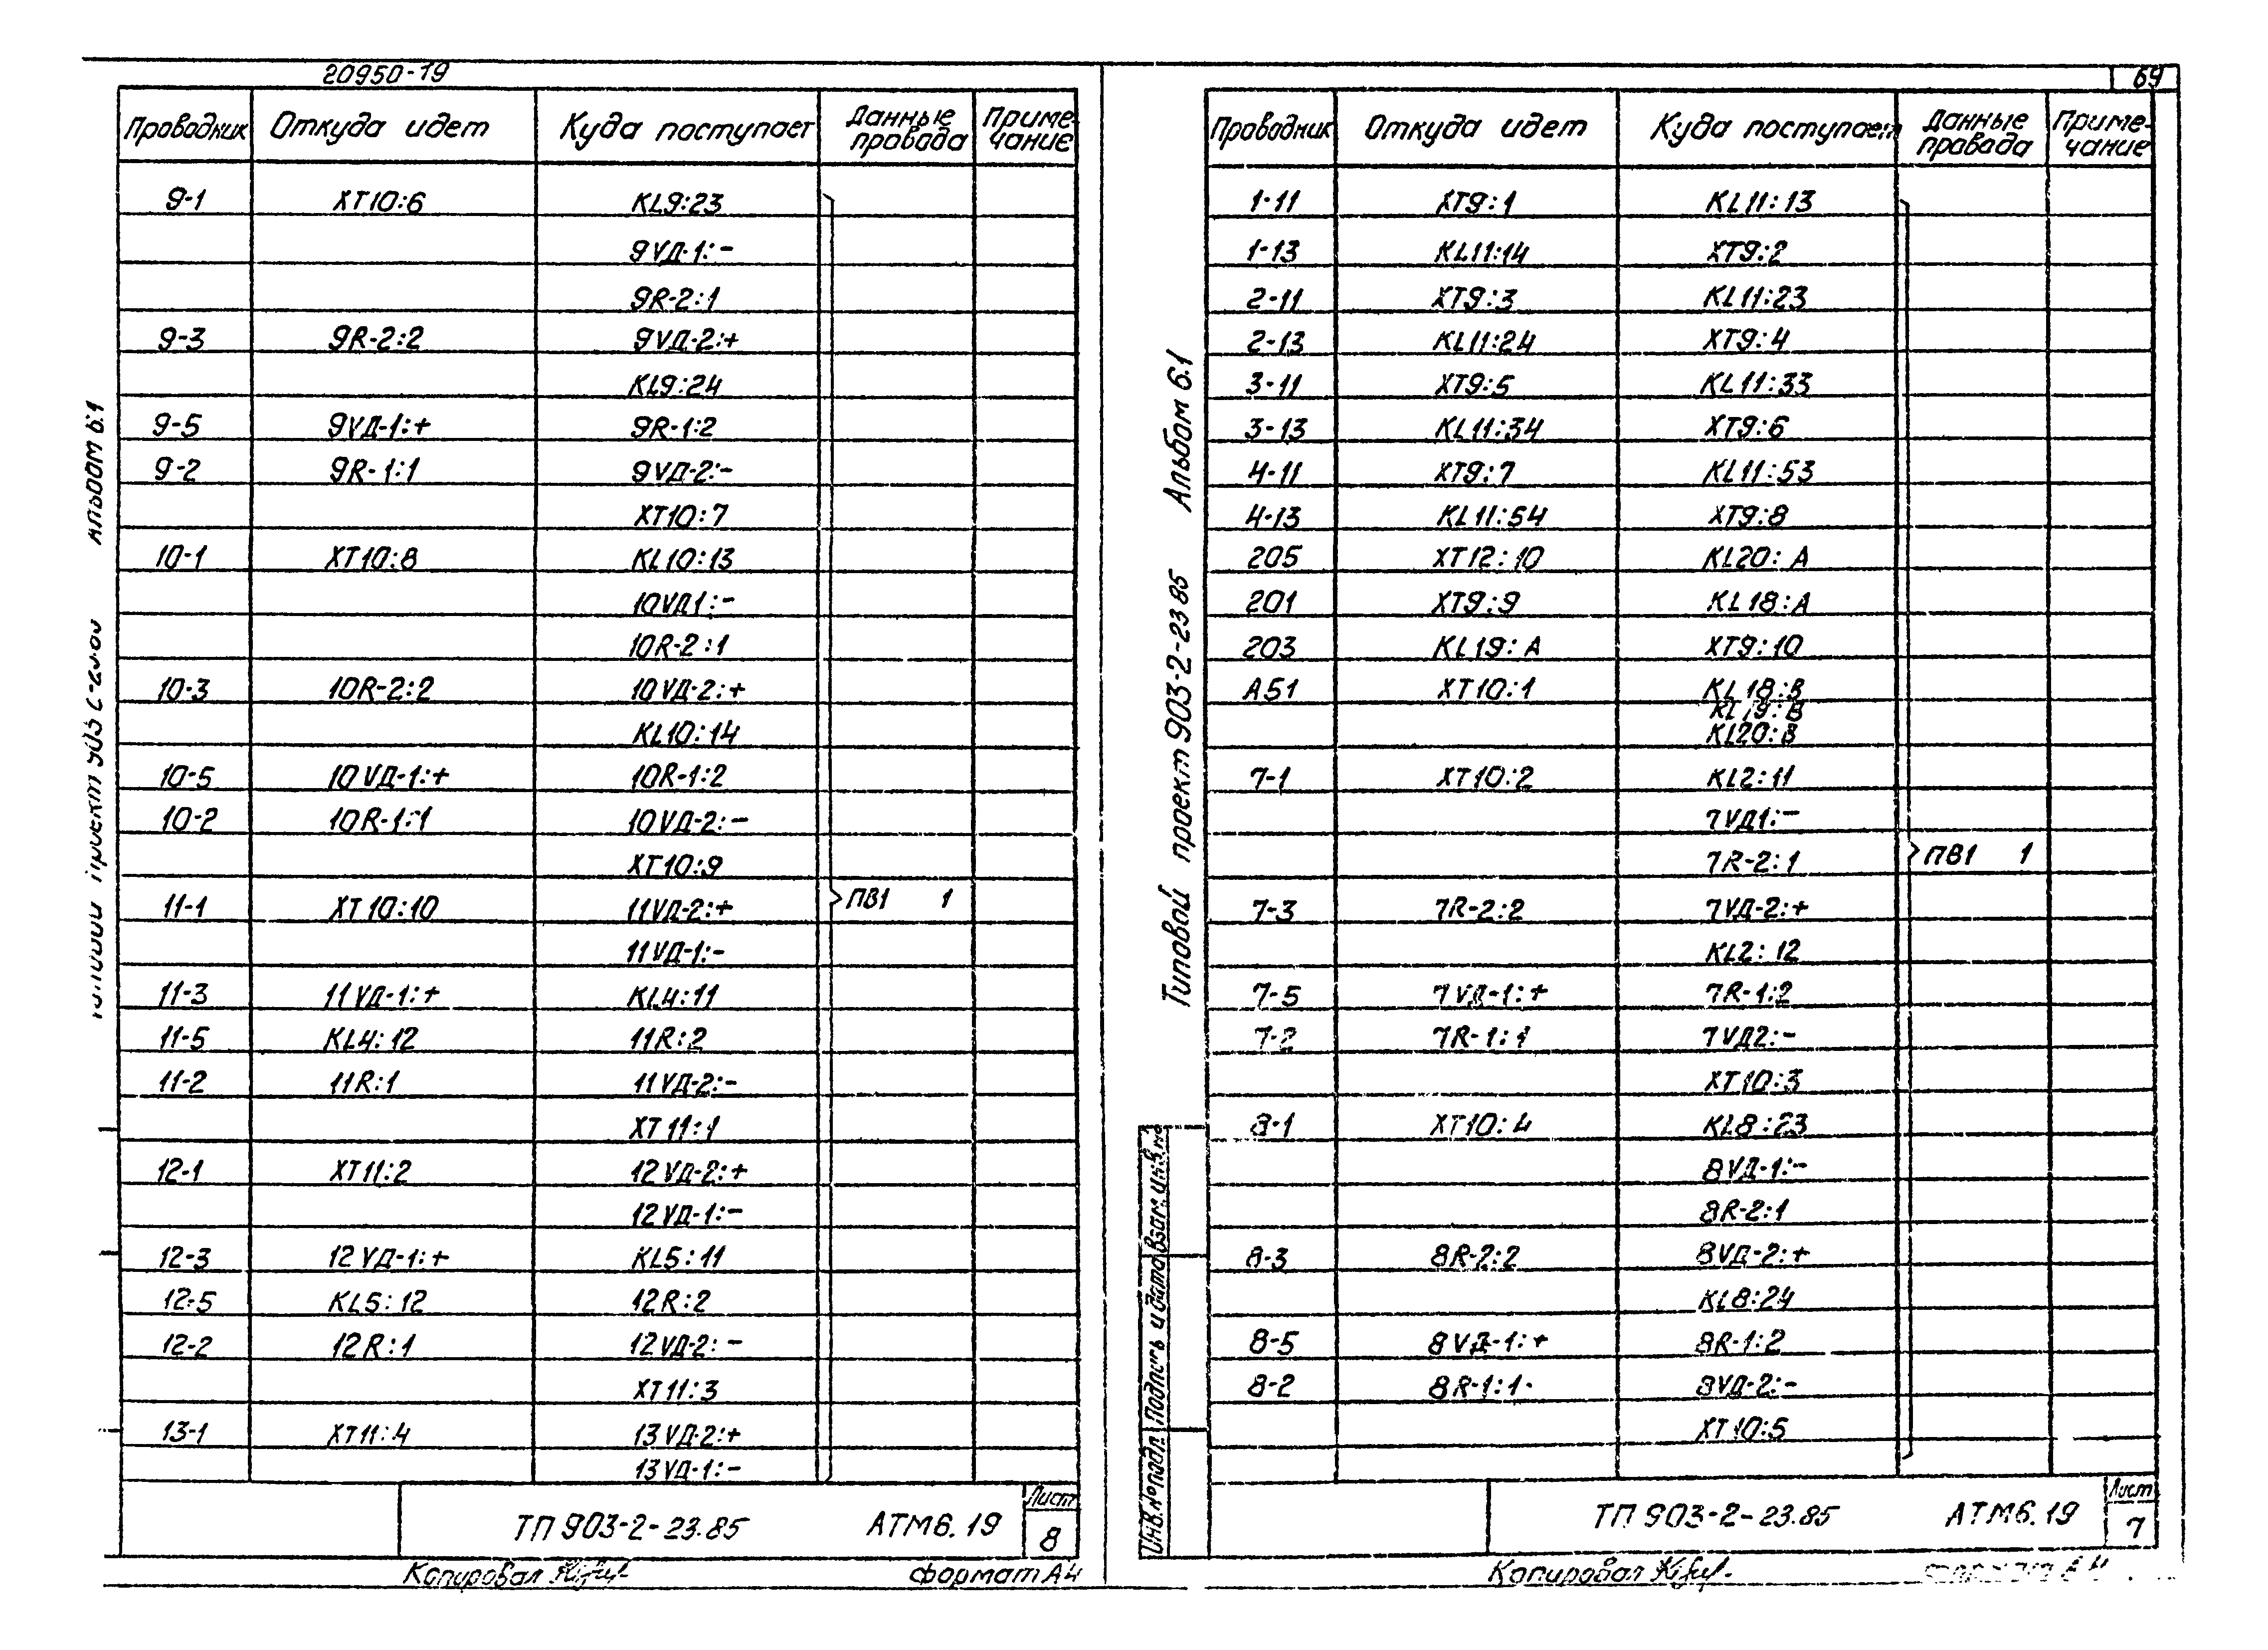 20950-19
Проводник Откуда идет Куда поступает Данные провода Приме-чание
9-1 XT10:6 KL9:23
9VД-1:-
9R-2:1
9-3 9R-2:2 9VД-2:+
KL9:24
9-5 9VД-1:+ 9R-1:2
9-2 9R-1:1 9VД-2:-
XT10:7
10-1 XT10:8 KL10:13
10VД1:-
10R-2:1
10-3 10R-2:2 10VД-2:+
KL10:14
10-5 10VД-1:+ 10R-1:2
10-2 10R-1:1 10VД-2:-
XT10:9
11-1 XT10:10 11VД-2:+ ПВ1 1
11VД-1:-
11-3 11VД-1:+ KL4:11
11-5 KL4:12 11R:2
11-2 11R:1 11VД-2:-
XT11:1
12-1 XT11:2 12VД-2:+
12VД-1:-
12-3 12VД-1:+ KL5:11
12-5 KL5:12 12R:2
12-2 12R:1 12VД-2:-
XT11:3
13-1 XT11:4 13VД-2:+
13VД-1:-
ТП 903-2-23.85 АТМ6.19 Лист 8
Копировал формат А4
69
Типовой проект 903-2-23 85 Альбом 6.1
Проводник Откуда идет Куда поступает Данные провода Приме-чание
1-11 XT9:1 KL11:13
1-13 KL11:14 XT9:2
2-11 XT9:3 KL11:23
2-13 KL11:24 XT9:4
3-11 XT9:5 KL11:33
3-13 KL11:34 XT9:6
4-11 XT9:7 KL11:53
4-13 KL11:54 XT9:8
205 XT12:10 KL20:A
201 XT9:9 KL18:A
203 KL19:A XT9:10
A51 XT10:1 KL18:B
KL19:B
KL20:B
7-1 XT10:2 KL2:11
7VД1:-
7R-2:1 ПВ1 1
7-3 7R-2:2 7VД-2:+
KL2:12
7-5 7VД-1:+ 7R-1:2
7-2 7R-1:1 7VД2:-
XT10:3
8-1 XT10:4 KL8:23
8VД-1:-
8R-2:1
8-3 8R-2:2 8VД-2:+
KL8:24
8-5 8VД-1:+ 8R-1:2
8-2 8R-1:1 8VД-2:-
XT10:5
Инв.№подл. Подпись и дата Взам.инв.№
ТП 903-2-23.85 АТМ6.19 Лист 7
Копировал